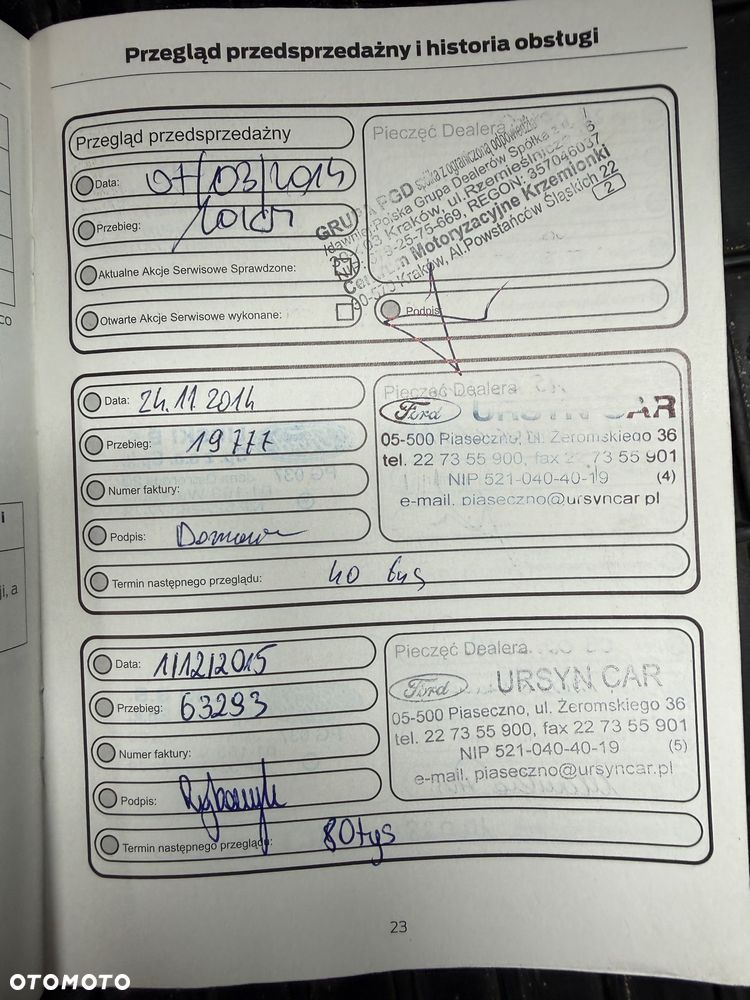 Przegląd przedsprzedażny i historia obsługi
Przegląd przedsprzedażny
Pieczęć Dealera
Data: 07/03/2014
Przebieg: 10km
Aktualne Akcje Serwisowe Sprawdzone:
Otwarte Akcje Serwisowe wykonane:
GRUPA PGD spółka z ograniczoną odpowiedzial
/dawniej:Polska Grupa Dealerów Spółka z
Kraków, ul. Rzemieślnicza
25-75-669, REGON: 357046037
Centrum Motoryzacyjne Krzemionki
Kraków, Al.Powstańców Śląskich 22
2
Podpis
Data: 24.11.2014
Przebieg: 19777
Numer faktury:
Podpis:
Termin następnego przeglądu: 40 tys
Pieczęć Dealera
Ford URSYN CAR
05-500 Piaseczno, ul. Żeromskiego 36
tel. 22 73 55 900, fax 22 73 55 901
NIP 521-040-40-19 (4)
e-mail. piaseczno@ursyncar.pl
Data: 1/12/2015
Przebieg: 63293
Numer faktury:
Podpis:
Termin następnego przeglądu: 80tys
Pieczęć Dealera
Ford URSYN CAR
05-500 Piaseczno, ul. Żeromskiego 36
tel. 22 73 55 900, fax 22 73 55 901
NIP 521-040-40-19 (5)
e-mail. piaseczno@ursyncar.pl
23
OTOMOTO